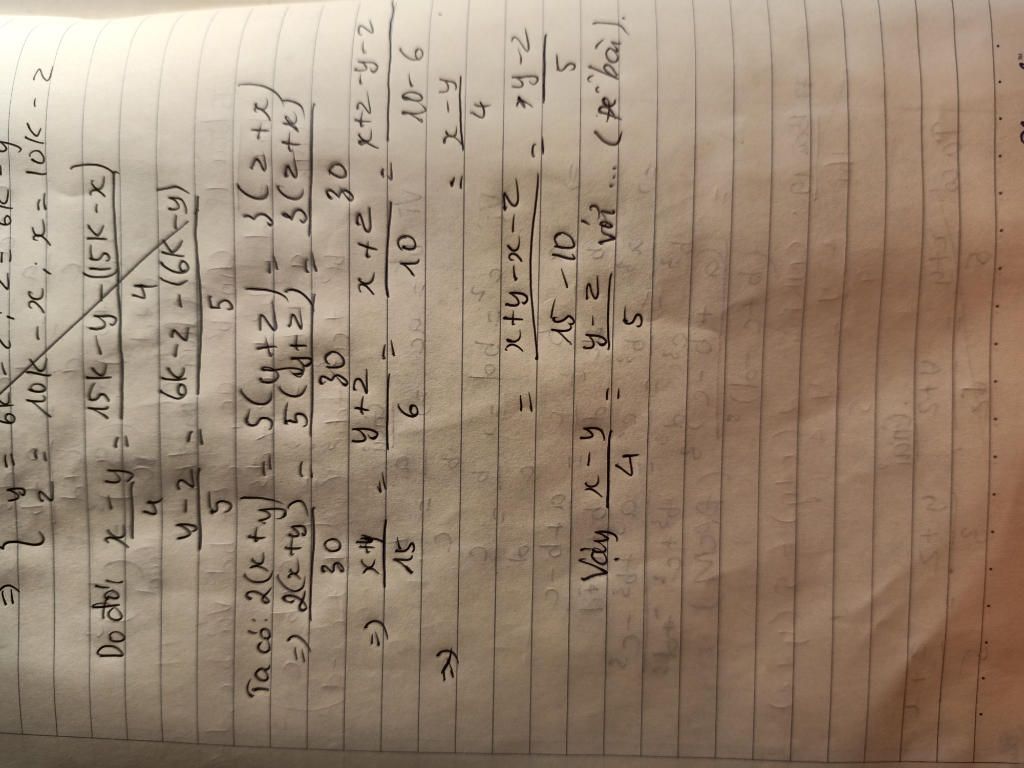 => { y = 6k - z ; z = 6k - y
z = 10k - x ; x = 10k - z
Do đó: x - y / 4 = 15k - y - (15k - x) / 4
y - z / 5 = 6k - z - (6k - y) / 5
Ta có: 2(x + y) = 5(y + z) = 3(z + x)
=> 2(x + y) / 30 = 5(y + z) / 30 = 3(z + x) / 30
=> x + y / 15 = y + z / 6 = x + z / 10 = x + z - y - z / 10 - 6
=> = x - y / 4
= x + y - x - z / 15 - 10 = y - z / 5
Vậy x - y / 4 = y - z / 5 với ... (đề bài).